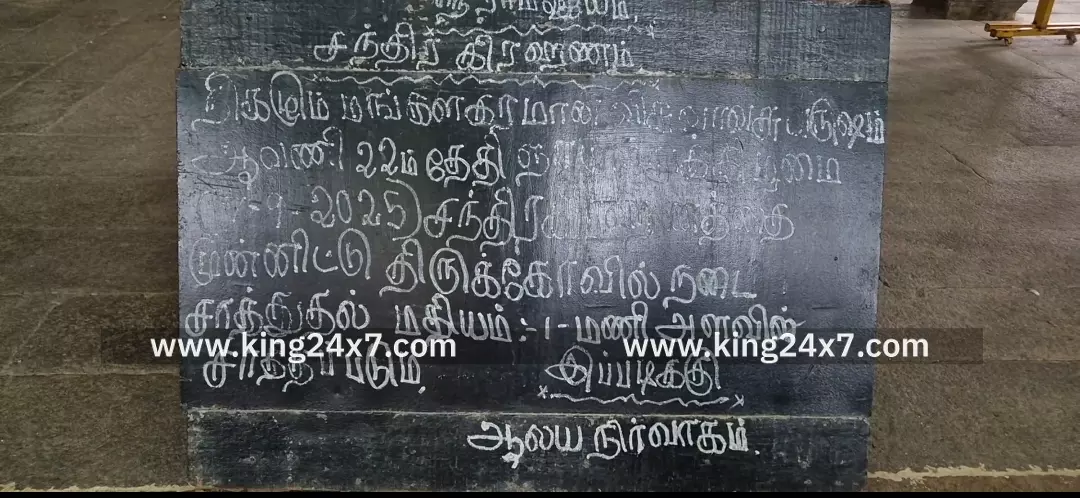 ஸ்ரீ ராமஜெயம்.
சந்திர கிரஹணம்
நிகழும் மங்களகரமான விசுவாவசு வருஷம்
ஆவணி 22ம் தேதி ஞாயிற்றுக்கிழமை
(7-9-2025) சந்திர கிரஹணத்தை
முன்னிட்டு திருக்கோவில் நடை
சாத்துதல் மதியம் :- 1 - மணி அளவில்
www.king24x7.com www.king24x7.com
சாத்தப்படும். இப்படிக்கு
ஆலய நிர்வாகம்.